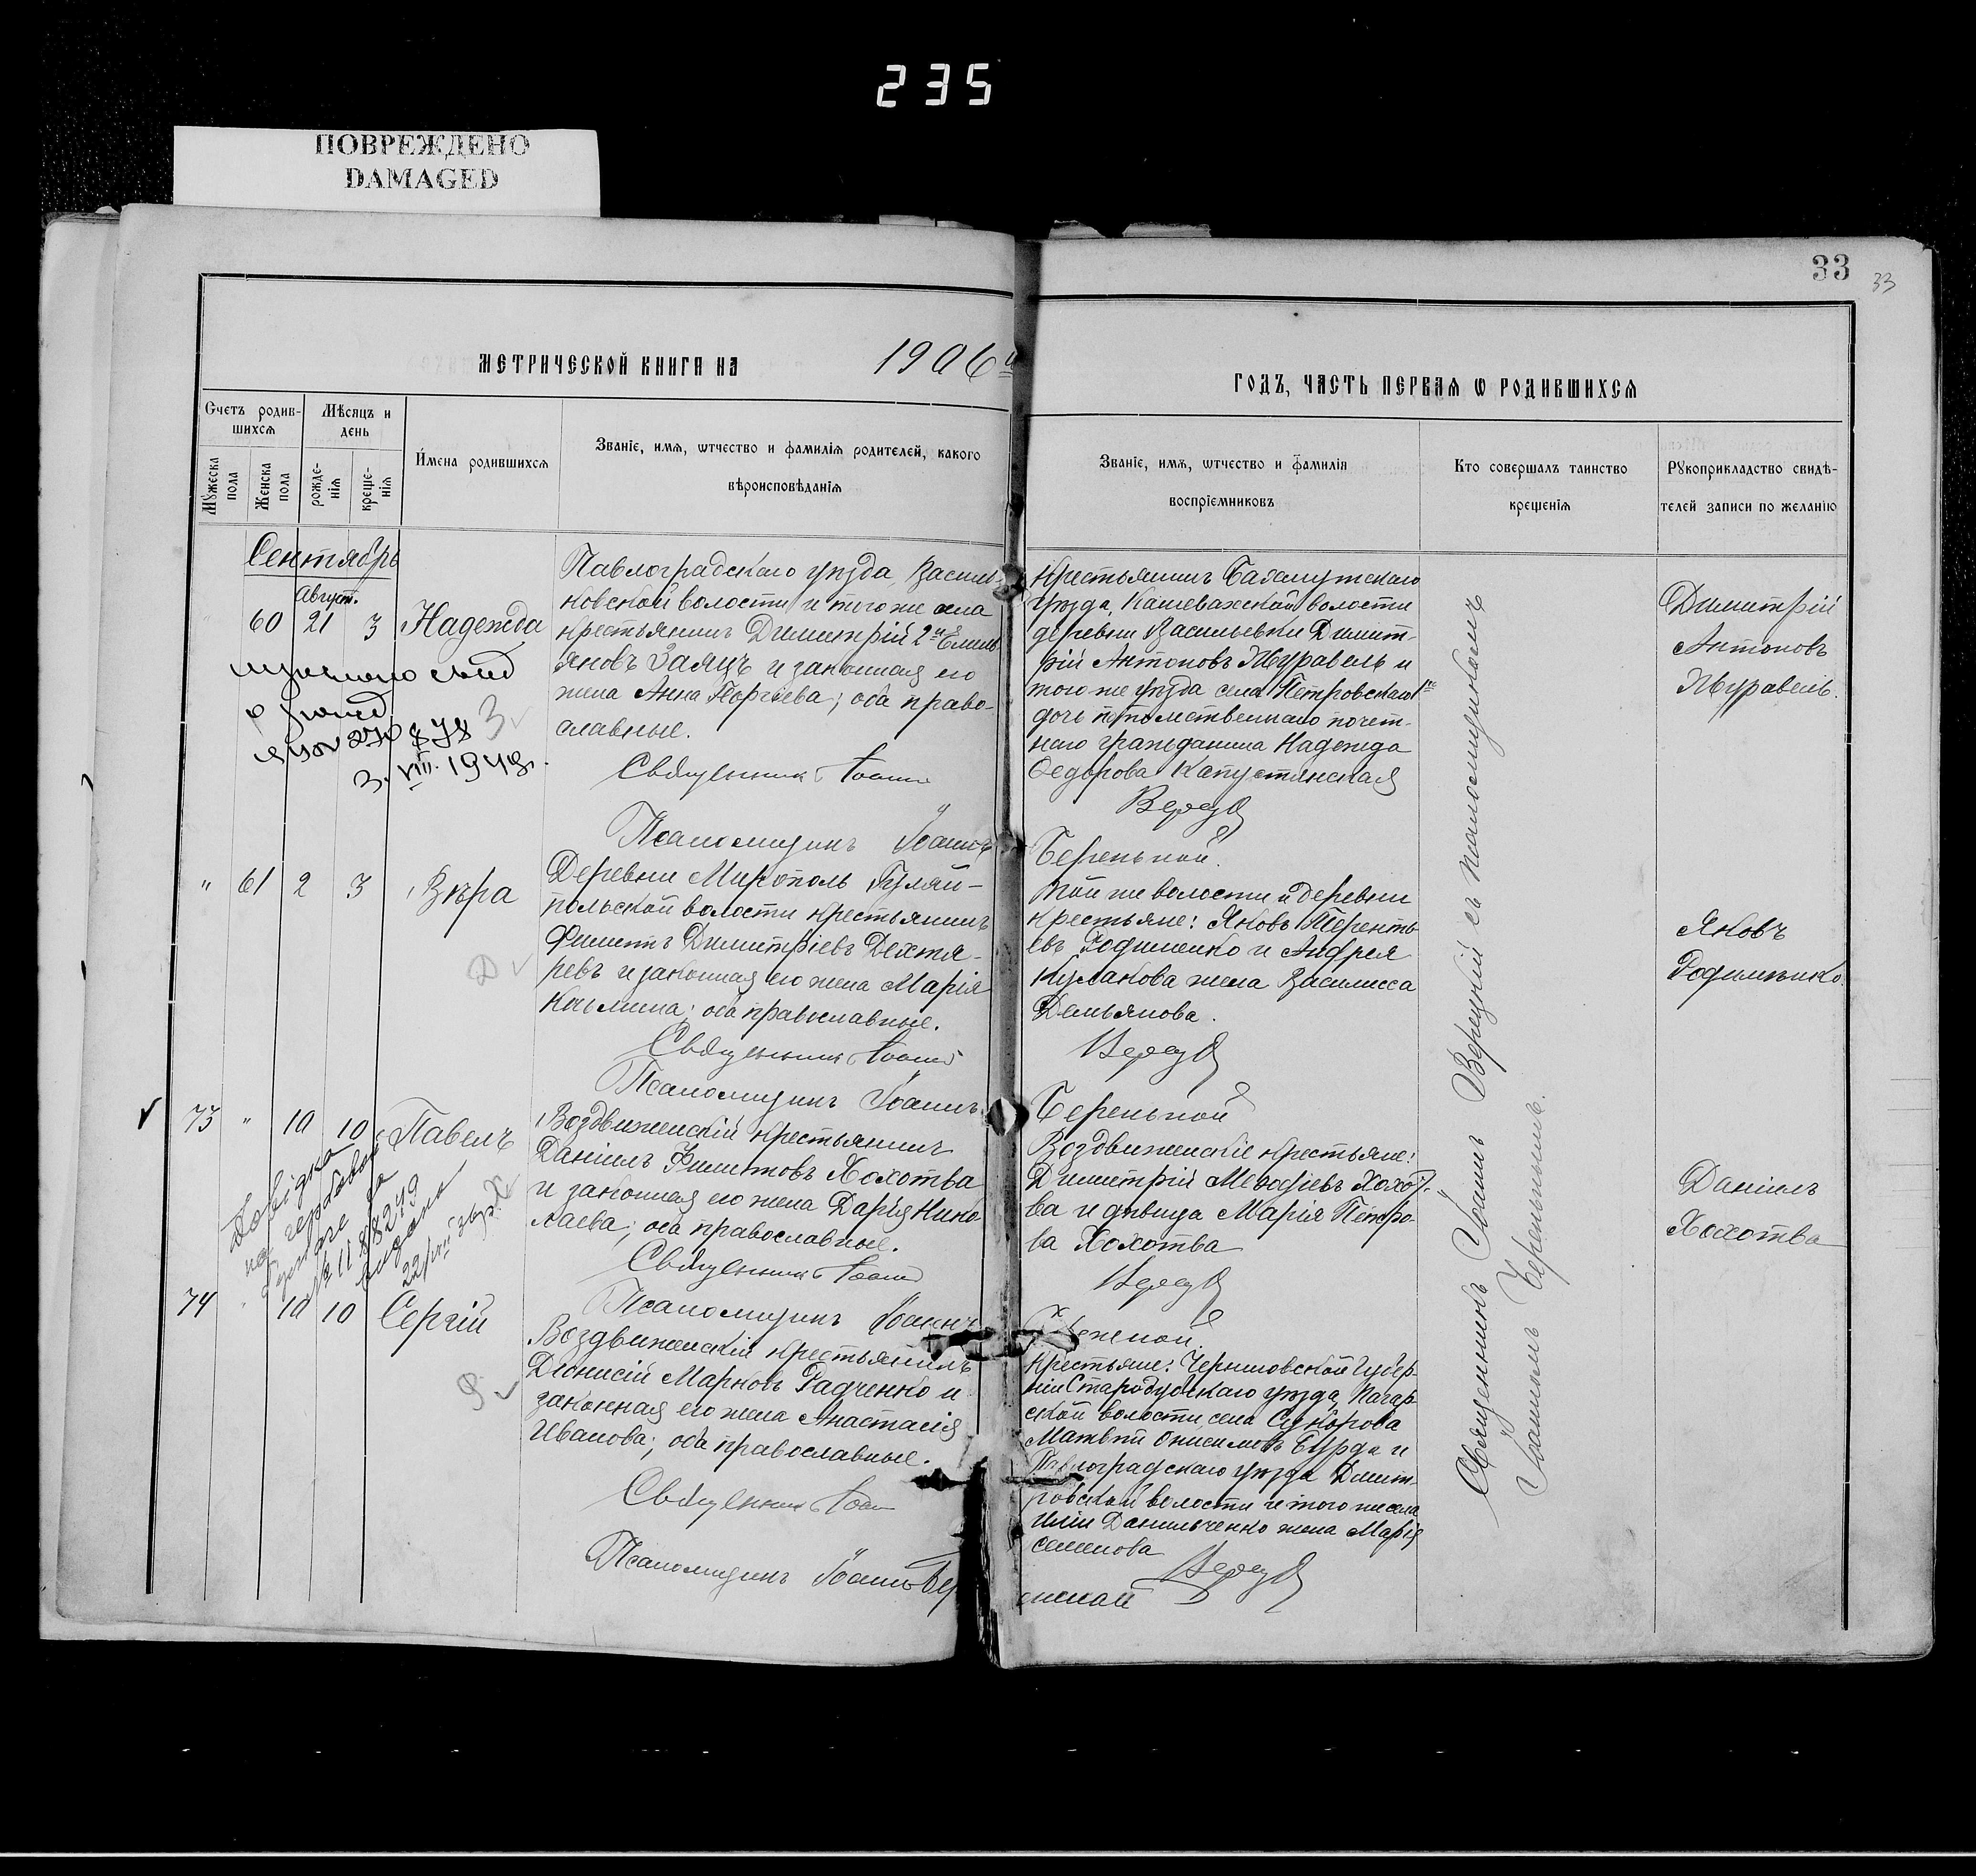 235
ПОВРЕЖДЕНО
DAMAGED
33
33
МЕТРИЧЕСКОЙ КНИГИ НА 1906й
ГОДЪ, ЧАСТЬ ПЕРВАѦ Ѡ РОДИВШИХСѦ
Счетъ родив-
шихсѧ
Мѣсяцъ и
день
Мꙋжеска
пола
Женска
пола
рожде-
нія
креще-
нія
Имена родившихсѧ
Званіе, имѧ, ѡтчество и фамилія родителей, какого
вѣроисповѣданіѧ
Званіе, имѧ, ѡтчество и фамиліѧ
воспріемниковъ
Кто совершалъ таинство
крещеніѧ
Рꙋкоприкладство свидѣ-
телей записи по желанію
Сентябрь
Август.
60 21 3 Надежда
3. VIII. 1948г.
З
Павлоградскаго уѣзда, Василь-
ковской волости и того же села
крестьянинъ Димитрій 2й Емиль
яновъ Заяцъ и законная его
жена Анна Георгіева; оба право-
славные.
Священникъ Іоаннъ
Псаломщикъ Іоаннъ
Крестьянинъ Бахмутскаго
уѣзда, волости
деревни Васильевки Димит-
рій Антоновъ Журавель и
того же уѣзда села Петровскаго
дочь потомственнаго почет-
наго гражданина Надежда
Ѳедорова Капустянская
Верец
Береньной.
Димитрій
Антоновъ
Журавель.
" 61 2 3 Вѣра
Д
Деревни Мирополь, Гуляй-
польской волости крестьянинъ
Филиппъ Димитріевъ Дехтя-
ревъ и законная его жена Марія
Косьмина; оба православные.
Священникъ Іоаннъ
Псаломщикъ Іоаннъ
Той же волости и деревни
крестьяне: Яковъ Теренть
евъ Родименко и Андрея
Кулакова жена Василисса
Демьянова.
Верец
Береньной
Яковъ
Родименко.
73 " 10 10 Павелъ
Довідка
на
№ 1188249
видана
22/
Х
Воздвиженскій крестьянинъ
Даніилъ Филиповъ Хохотва
и законная его жена Дарія Нико
лаева; оба православные.
Священникъ Іоаннъ
Псаломщикъ Іоаннъ
Воздвиженскіе крестьяне:
Димитрій Меѳодіевъ Хохот-
ва и дѣвица Марія Петро-
ва Хохотва
Верец
Даніилъ
Хохотва
74 " 10 10 Сергій
Р
Воздвиженскій крестьянинъ
Діонисій Марковъ Радченко и
законная его жена Анастасія
Иванова; оба православные.
Священникъ Іоан
Псаломщикъ Іоаннъ Бер
Крестьяне: Черниговской губер-
ніи Стародубскаго уѣзда, Пагар-
ской волости, села Суворова
Матвѣй Онисимовъ Бурда и
Павлоградскаго уѣзда Димит-
ровской волости и того же села
Иліи Данильченко жена Марія
Семенова
Верец
Священникъ Іоаннъ Верецкій съ псаломщикомъ
Іоанномъ Береньнымъ.